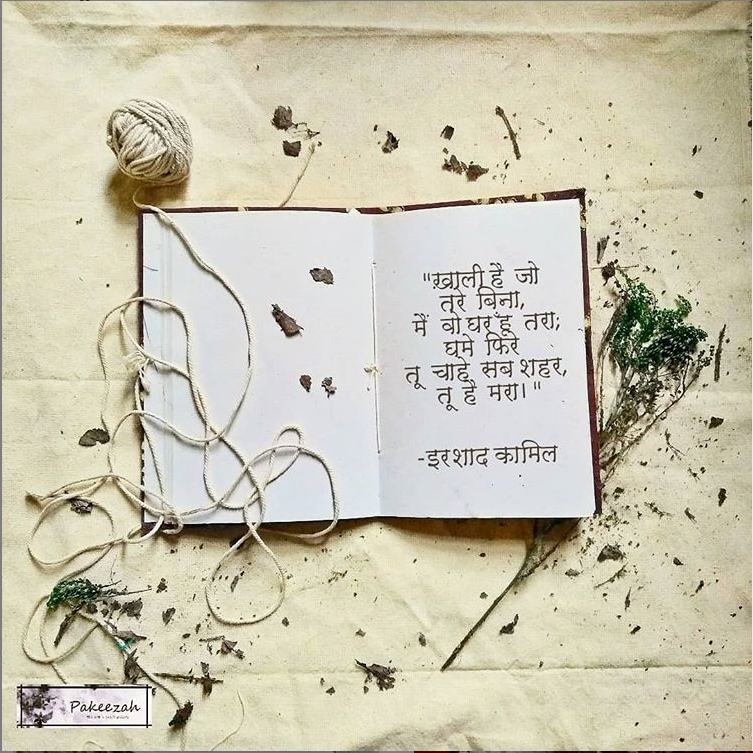 "ख़ाली है जो
तेरे बिना,
मैं वो घर हूँ तेरा;
घूमे फिरे
तू चाहे सब शहर,
तू है मेरा।"
-इरशाद कामिल
Pakeezah